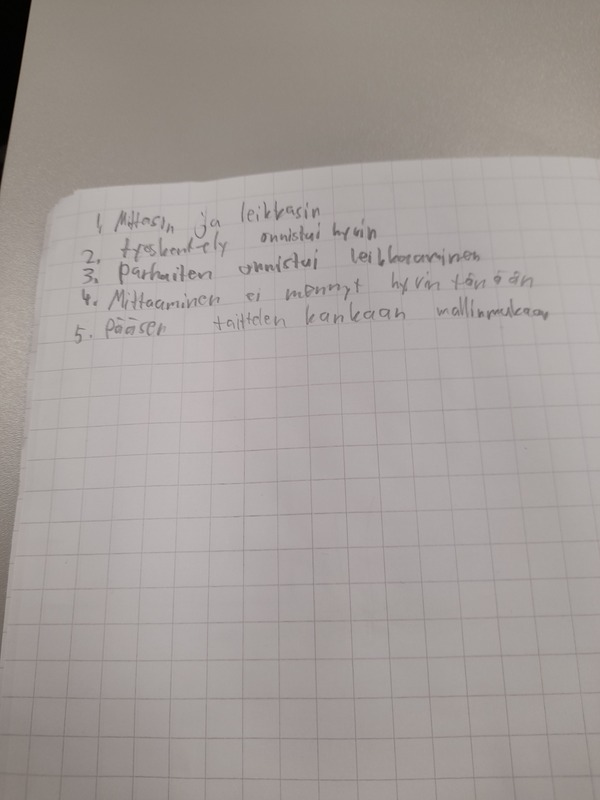 1, Mittasin ja leikkasin
2. työskentely onnistui hyvin
3. parhaiten onnistui leikkaaminen
4. Mittaaminen ei mennyt hyvin tänään
5. Pääsen taittelen kankaan mallinmukaan